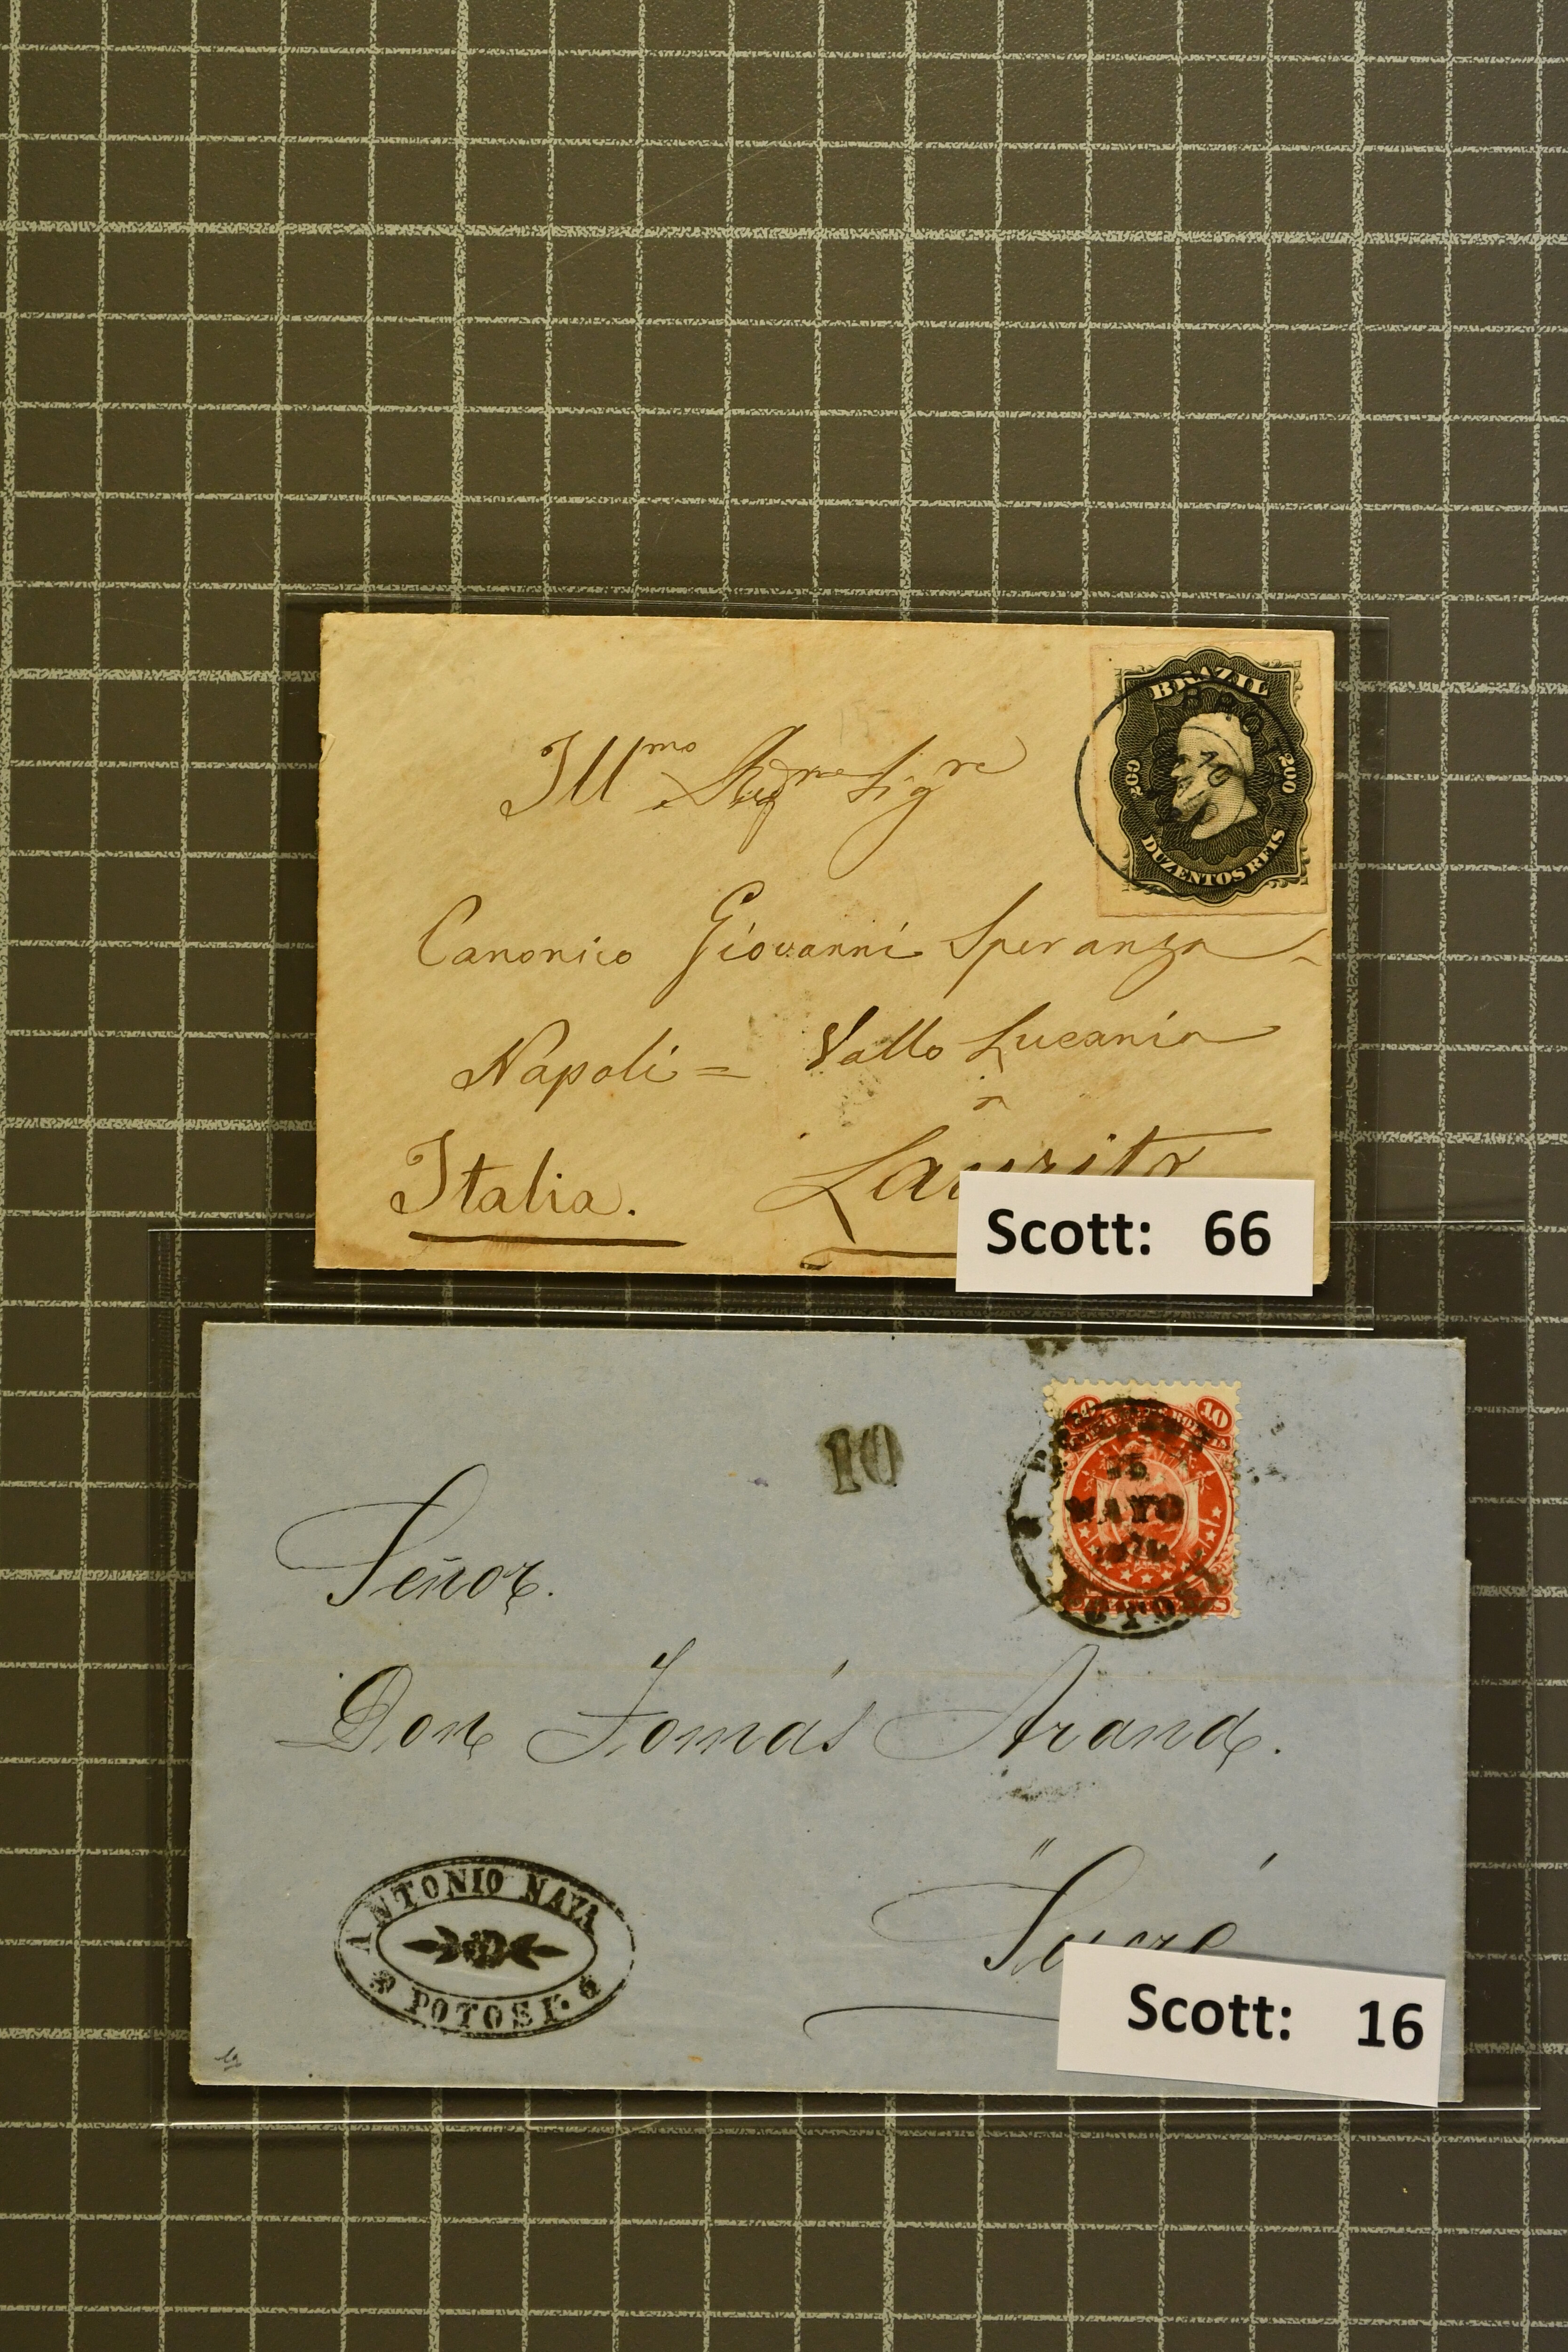 BRAZIL
200 200
DUZENTOS REIS
10
Illmo Sigre
Canonico Giovanni Speranza
Napoli = Vallo Lucania
Italia. Laurito
Scott: 66
10
10
MAYO
POTOSI
Señor.
Don Tomás Arana.
ANTONIO NAZA
POTOSI.
Sucre
Scott: 16